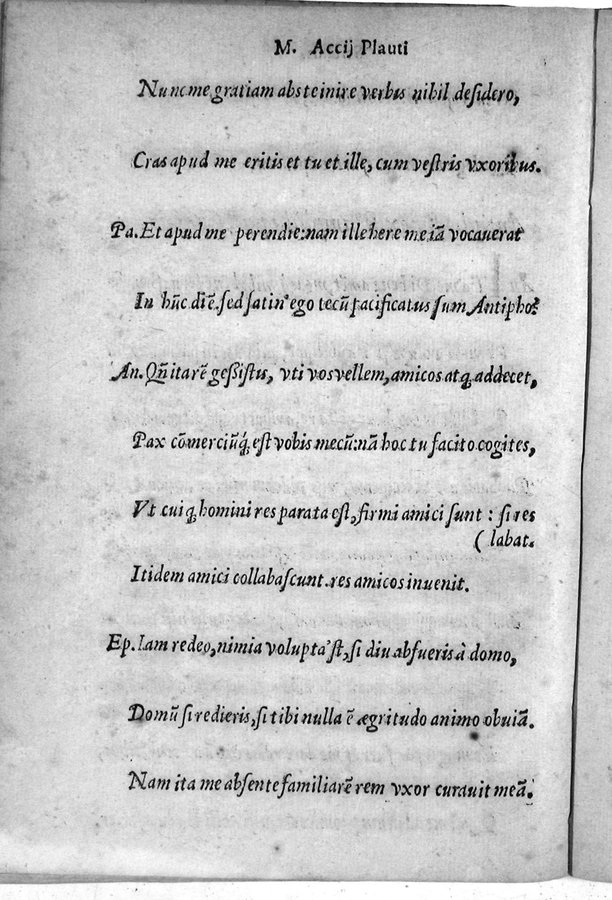 M. Accij Plauti
Nunc me gratiam abs te inire verbis nihil desidero,
Cras apud me eritis et tu et ille, cum vestris vxoribus.
Pa. Et apud me perendie: nam ille here me iã vocauerat
In hũc diẽ. sed satin' ego tecũ pacificatus sum Antipho?
An. Qñ ita rẽ gessistis, vti vos vellem, amicos atq; addecet,
Pax cõmerciũq́; est vobis mecũ: nã hoc tu facito cogites,
Vt cuiq; homini res parata est, firmi amici sunt : si res
( labat.
Itidem amici collabascunt. res amicos inuenit.
Ep. Iam redeo, nimia volupta'st, si diu absueris à domo,
Domũ si redieris, si tibi nulla ẽ ægritudo animo obuiã.
Nam ita me absente familiarẽ rem vxor curauit meã.